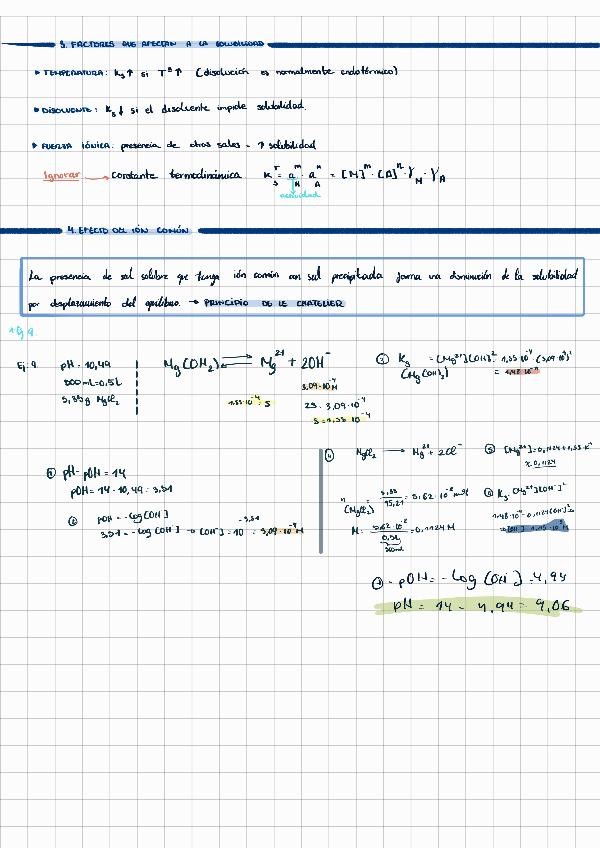 3. FACTORES QUE AFECTAN A LA SOLUBILIDAD
▸ TEMPERATURA: Ks↑ si Tª↑ (disolución es normalmente endotérmico)
▸ DISOLVENTE: Ks↓ si el disolvente impide solubilidad.
▸ FUERZA IÓNICA: presencia de otras sales = ↑ solubilidad
Ignorar → Constante termodinámica K_S^T = a_M^m · a_A^n = [M]^m · [A]^n · γ_M · γ_A
actividad
4. EFECTO DEL IÓN COMÚN
La presencia de sal soluble que tenga ión común con sal precipitada forma una disminución de la solubilidad
por desplazamiento del equilibrio. → PRINCIPIO DE LE CHATELIER
Ej. 9. pH = 10,49
500 mL = 0,5 L
5,35 g MgCl₂
Mg(OH₂) ⇌ Mg²⁺ + 2OH⁻
3,09·10⁻⁴ M
1.55·10⁻⁴ = S 2S = 3,09·10⁻⁴
S = 1,55·10⁻⁴
③ Ks = [Mg²⁺][OH]² = 1,55·10⁻⁴ · (3,09·10⁻⁴)²
(Mg(OH)₂) = 1,48·10⁻¹¹
① pH - pOH = 14
pOH = 14 - 10,49 = 3,51
② pOH = -log[OH⁻]
3,51 = -log[OH⁻] → [OH⁻] = 10^-3,51 = 3,09·10⁻⁴ M
④ MgCl₂ → Mg²⁺ + 2Cl⁻
n (MgCl₂) = 5,35 / 95,21 = 5,62·10⁻² mol
M = 5,62·10⁻² / 0,5L = 0,1124 M
500mL
⑤ [Mg²⁺] = 0,1124 + 1,55·10⁻⁴
≈ 0,1124
⑥ Ks = [Mg²⁺][OH⁻]²
1,48·10⁻¹¹ = 0,1124[OH⁻]²
⑦ - pOH = -log[OH⁻] = 4,94
pH = 14 - 4,94 = 9,06